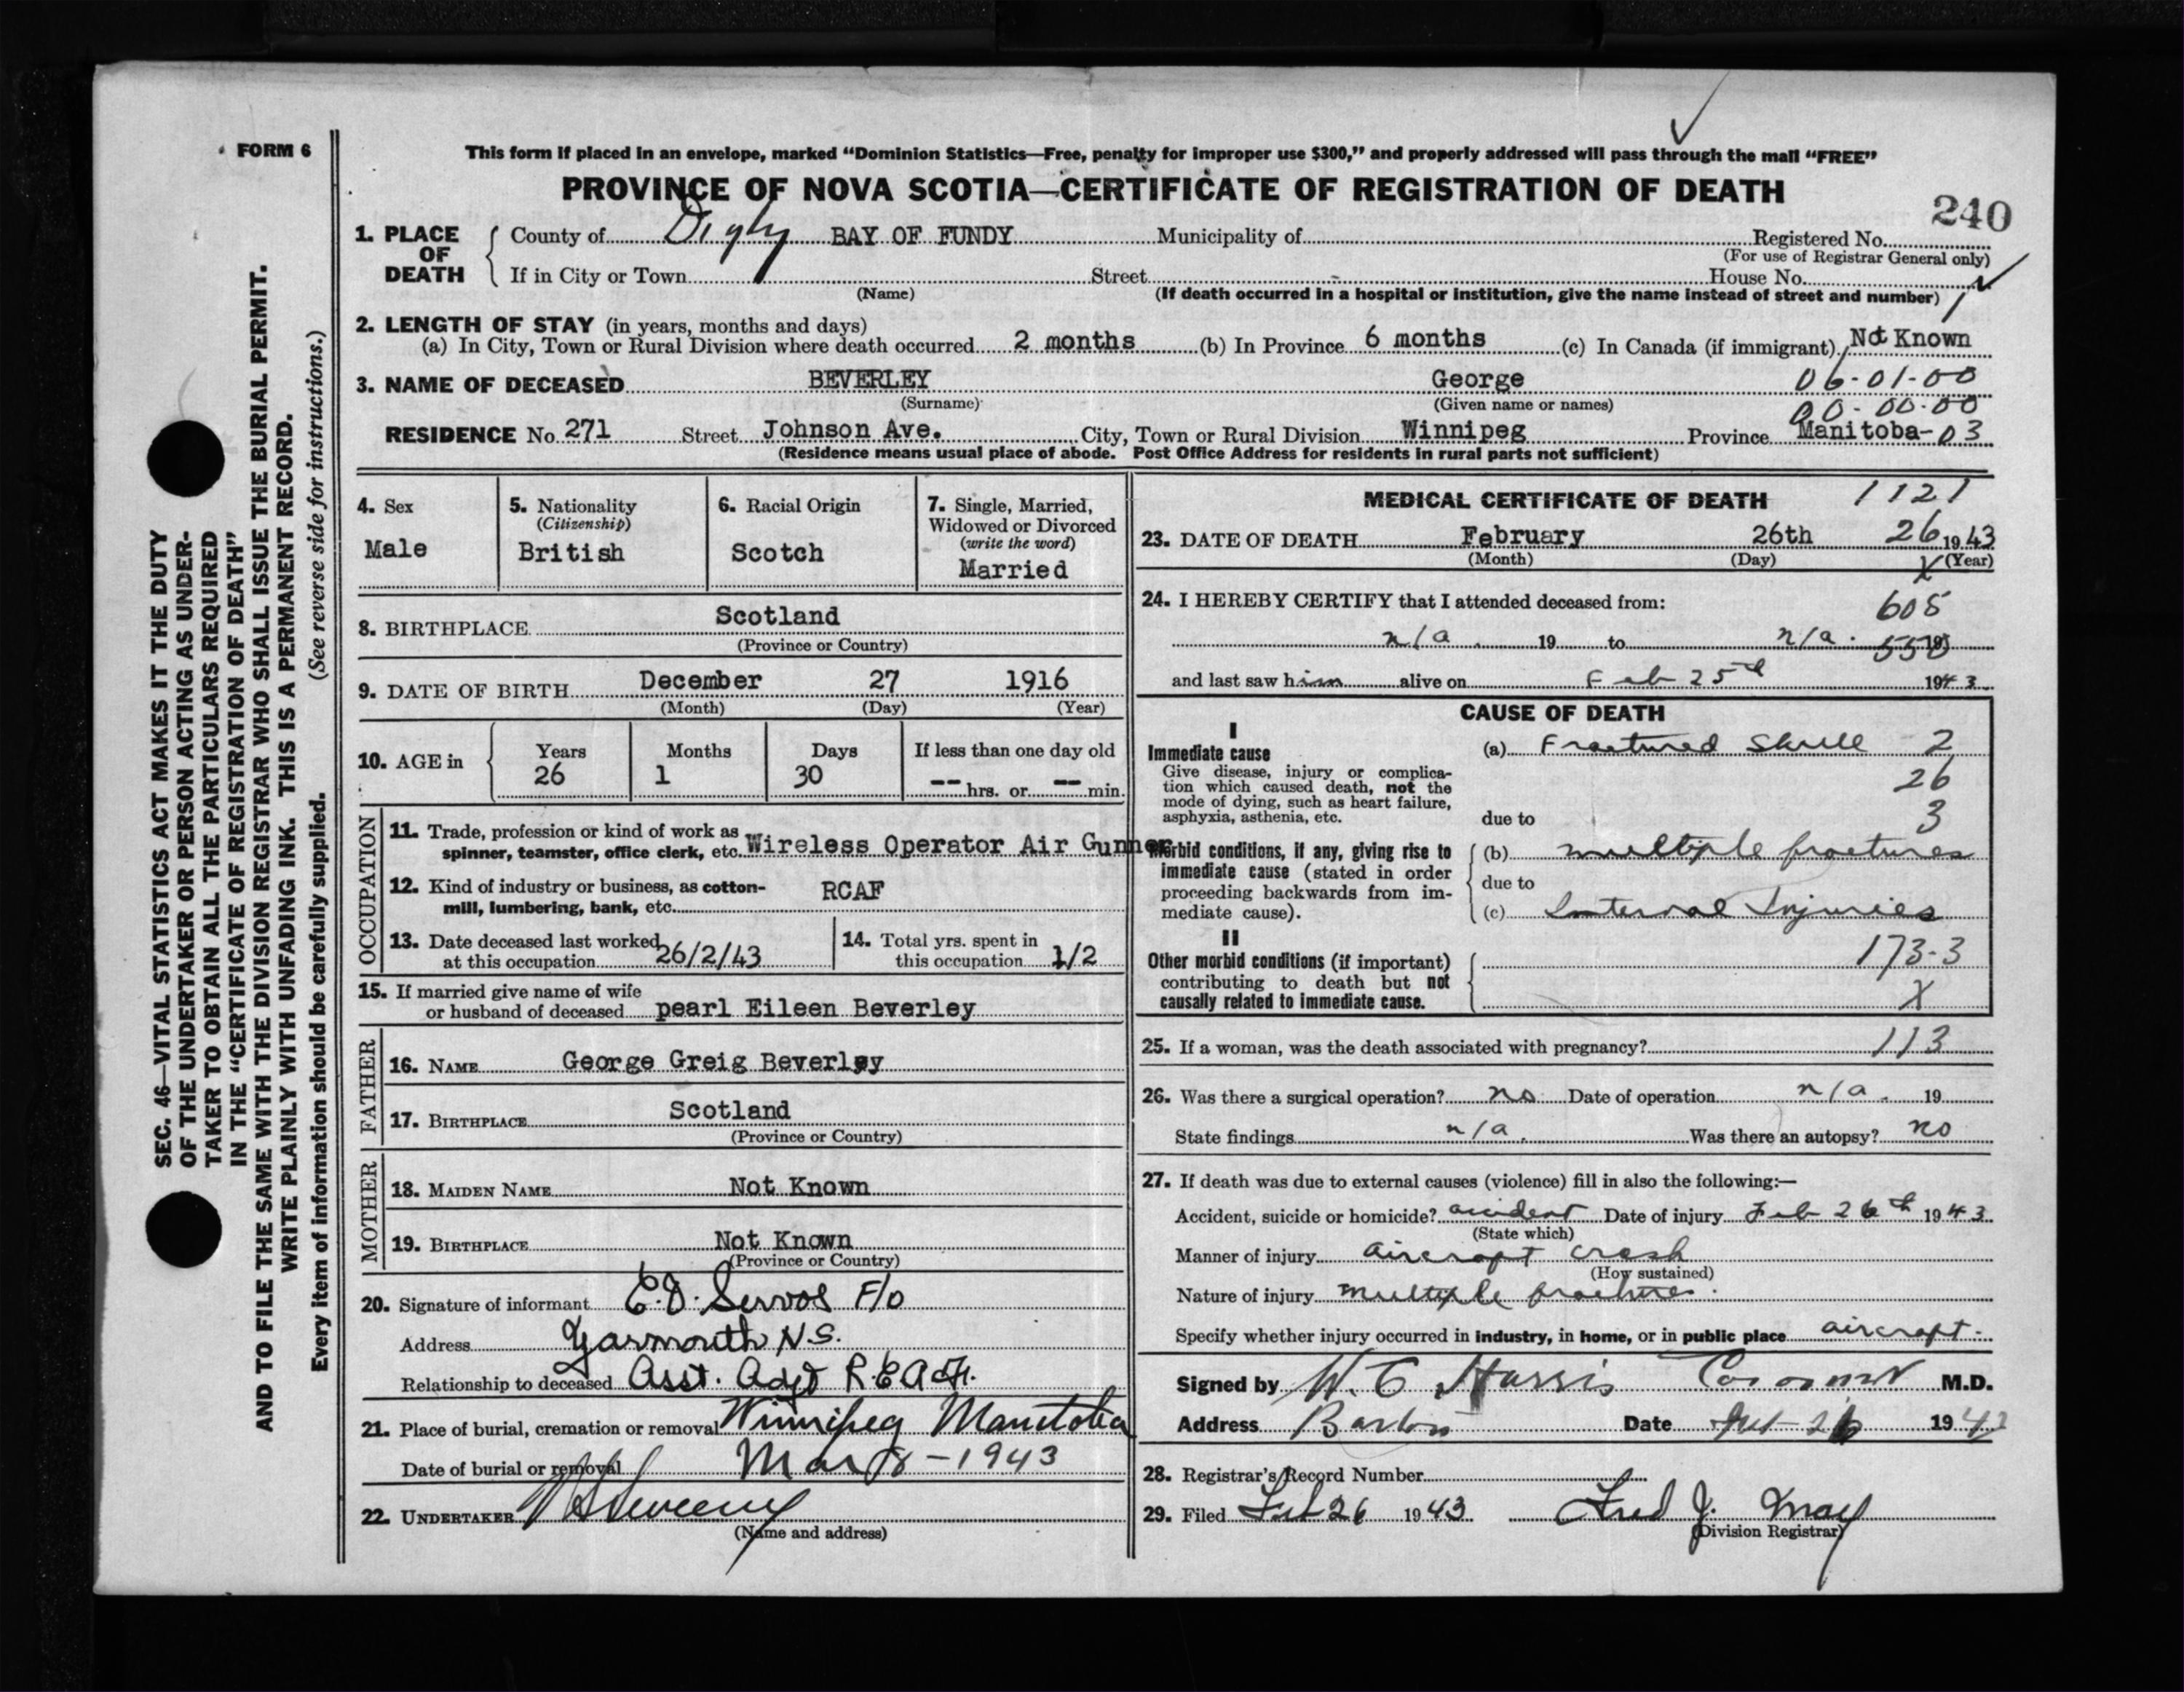 FORM 6
This form if placed in an envelope, marked “Dominion Statistics—Free, penalty for improper use $300,” and properly addressed will pass through the mail “FREE”
PROVINCE OF NOVA SCOTIA—CERTIFICATE OF REGISTRATION OF DEATH
240
1. PLACE OF DEATH
County of Digby BAY OF FUNDY Municipality of Registered No.
(For use of Registrar General only)
If in City or Town Street House No.
(Name) (If death occurred in a hospital or institution, give the name instead of street and number)
2. LENGTH OF STAY (in years, months and days)
(a) In City, Town or Rural Division where death occurred 2 months (b) In Province 6 months (c) In Canada (if immigrant) Not Known
3. NAME OF DECEASED BEVERLEY George 06-01-00
(Surname) (Given name or names) 00-00-00
RESIDENCE No. 271 Street Johnson Ave. City, Town or Rural Division Winnipeg Province Manitoba-03
(Residence means usual place of abode. Post Office Address for residents in rural parts not sufficient)
4. Sex
Male
5. Nationality
(Citizenship)
British
6. Racial Origin
Scotch
7. Single, Married,
Widowed or Divorced
(write the word)
Married
8. BIRTHPLACE Scotland
(Province or Country)
9. DATE OF BIRTH December 27 1916
(Month) (Day) (Year)
10. AGE in Years Months Days If less than one day old
26 1 30 -- hrs. or -- min.
OCCUPATION
11. Trade, profession or kind of work as
spinner, teamster, office clerk, etc. Wireless Operator Air Gunner
12. Kind of industry or business, as cotton-
mill, lumbering, bank, etc. RCAF
13. Date deceased last worked
at this occupation 26/2/43
14. Total yrs. spent in
this occupation 1/2
15. If married give name of wife
or husband of deceased pearl Eileen Beverley
FATHER
16. NAME George Greig Beverley
17. BIRTHPLACE Scotland
(Province or Country)
MOTHER
18. MAIDEN NAME Not Known
19. BIRTHPLACE Not Known
(Province or Country)
20. Signature of informant E.D. Servos F/o
Address Yarmouth N.S.
Relationship to deceased Asst. Adjt R.C.A.F.
21. Place of burial, cremation or removal Winnipeg Manitoba
Date of burial or removal Mar 8-1943
22. UNDERTAKER Sweeny
(Name and address)
MEDICAL CERTIFICATE OF DEATH 1121
23. DATE OF DEATH February 26th 26 1943
(Month) (Day) (Year)
X
24. I HEREBY CERTIFY that I attended deceased from: 605
n/a. 19 to n/a. 19
550
and last saw him alive on Feb 25th 1943.
CAUSE OF DEATH
I
Immediate cause
Give disease, injury or complica-
tion which caused death, not the
mode of dying, such as heart failure,
asphyxia, asthenia, etc.
(a) Fractured Skull 2
26
due to 3
Morbid conditions, if any, giving rise to
immediate cause (stated in order
proceeding backwards from im-
mediate cause).
(b) multiple fractures
due to
(c) Internal Injuries
II
Other morbid conditions (if important)
contributing to death but not
causally related to immediate cause.
173-3
X
25. If a woman, was the death associated with pregnancy? 113
26. Was there a surgical operation? no Date of operation n/a. 19
State findings n/a. Was there an autopsy? no
27. If death was due to external causes (violence) fill in also the following:—
Accident, suicide or homicide? accident Date of injury Feb 26th 1943.
(State which)
Manner of injury aircraft crash
(How sustained)
Nature of injury multiple fractures.
Specify whether injury occurred in industry, in home, or in public place aircraft.
Signed by W. C Harris Coroner M.D.
Address Barton Date Feb 26 1943
28. Registrar's Record Number
29. Filed Feb 26 1943. Fred J. May
(Division Registrar)
SEC. 46—VITAL STATISTICS ACT MAKES IT THE DUTY
OF THE UNDERTAKER OR PERSON ACTING AS UNDER-
TAKER TO OBTAIN ALL THE PARTICULARS REQUIRED
IN THE “CERTIFICATE OF REGISTRATION OF DEATH”
AND TO FILE THE SAME WITH THE DIVISION REGISTRAR WHO SHALL ISSUE THE BURIAL PERMIT.
WRITE PLAINLY WITH UNFADING INK. THIS IS A PERMANENT RECORD.
Every item of information should be carefully supplied. (See reverse side for instructions.)